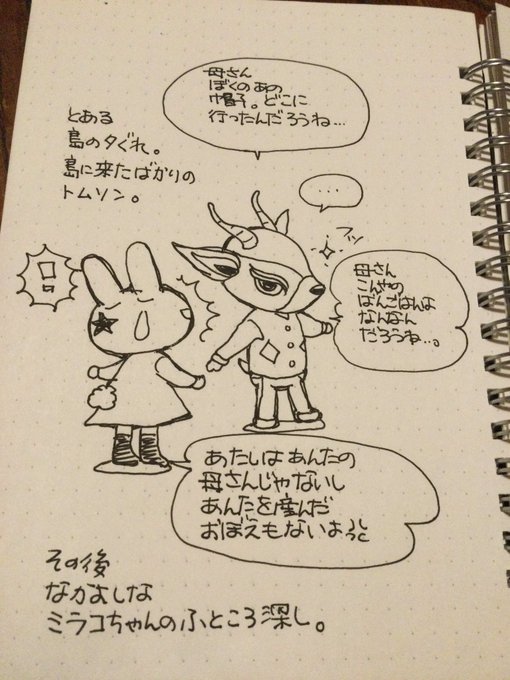 とある
島の夕ぐれ。
島に来たばかりの
トムソン。
母さん
ぼくのあの
帽子。どこに
行ったんだろうね…
…
フッ
母さん
こんやの
ばんごはんは
なんなん
だろうね…。
あたしはあんたの
母さんじゃないし
あんたを産んだ
おぼえもないよ
その後
なかよしな
ミラコちゃんのふところ深し。